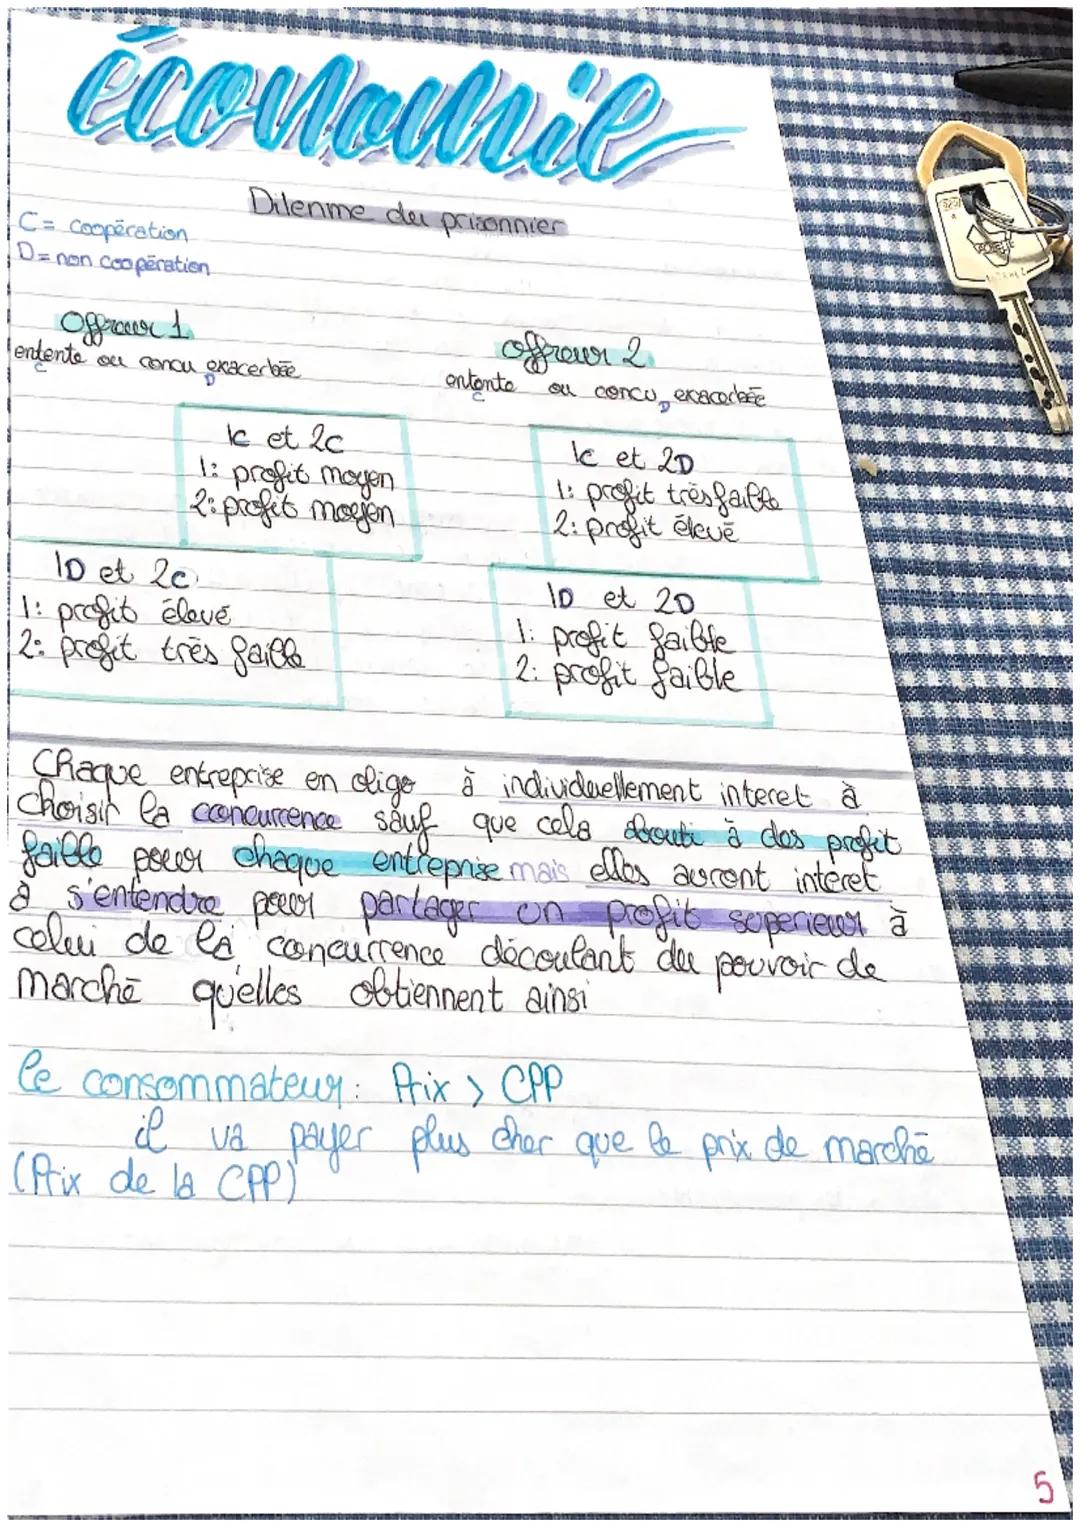 économie
Dilenme du prisonnier
C = coopération
D = non coopération
Offreur 1
entente ou concu exacerbée
C D
offreur 2
entente ou concu exacerbée
C D
1C et 2C
1: profit moyen
2: profit moyen
1C et 2D
1: profit très faible
2: profit élevé
1D et 2C
1: profit élevé
2: profit très faible
1D et 2D
1: profit faible
2: profit faible
Chaque entreprise en oligo à individuellement interet à
choisir la concurrence sauf que cela abouti à des profit
faible pour chaque entreprise mais elles auront interet
à s'entendre pour partager un profit superieur à
celui de la concurrence découlant du pouvoir de
marché qu'elles obtiennent ainsi
le consommateur: Prix > CPP
il va payer plus cher que le prix de marché
(Prix de la CPP)
5